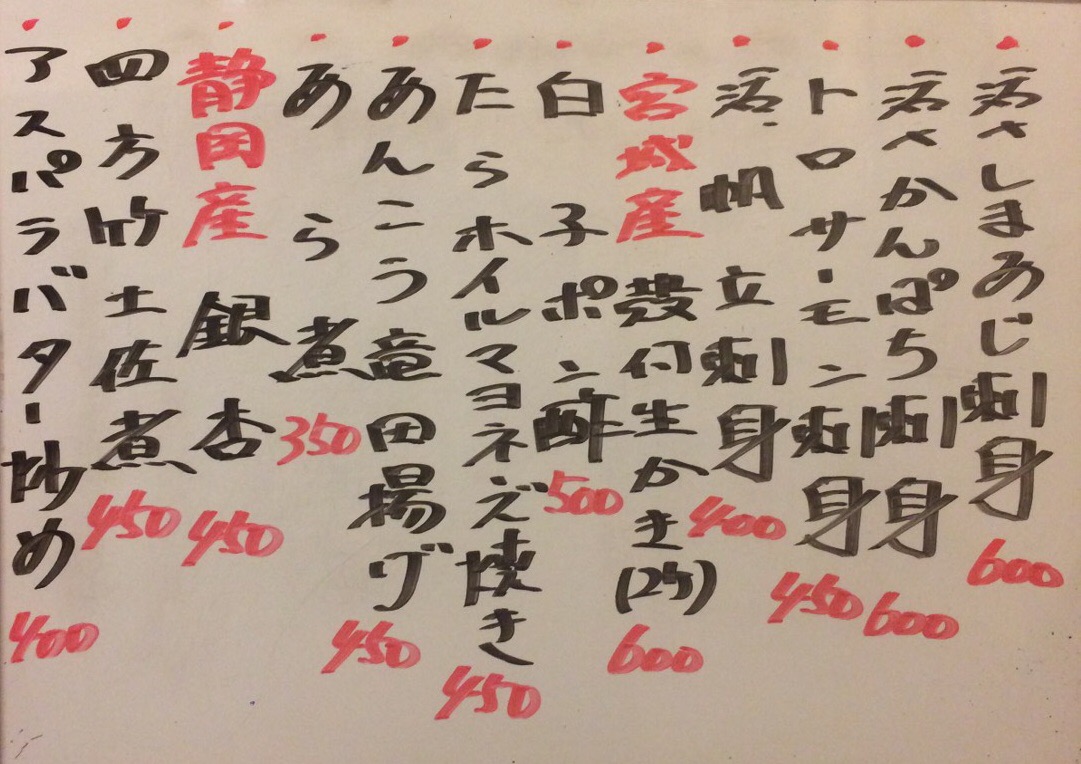 ・活〆しまあじ刺身 600
・活〆かんぱち刺身 600
・トロサーモン刺身 450
・活帆立刺身 400
・宮城産殻付生かき(2ケ) 600
・白子ポン酢 500
・たらホイルマヨネーズ焼き 450
・あんこう竜田揚げ 450
・あら煮 350
・静岡産銀杏 450
・四方竹土佐煮 450
・アスパラバター炒め 400